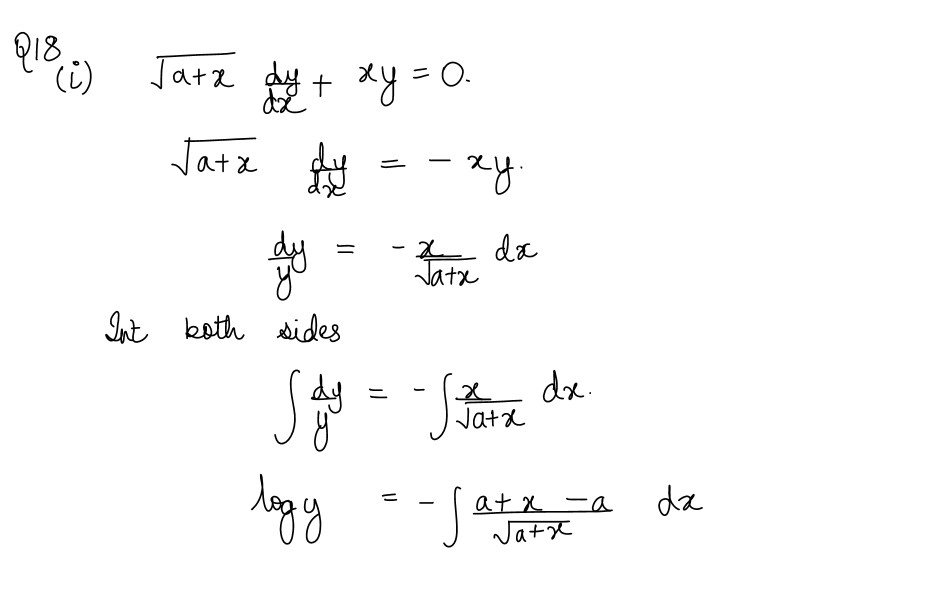 Q18
(i) √(a+x) dy/dx + xy = 0.
√(a+x) dy/dx = - xy.
dy/y = - x/√(a+x) dx
Int both sides
∫ dy/y = - ∫ x/√(a+x) dx.
log y = - ∫ (a+x-a)/√(a+x) dx